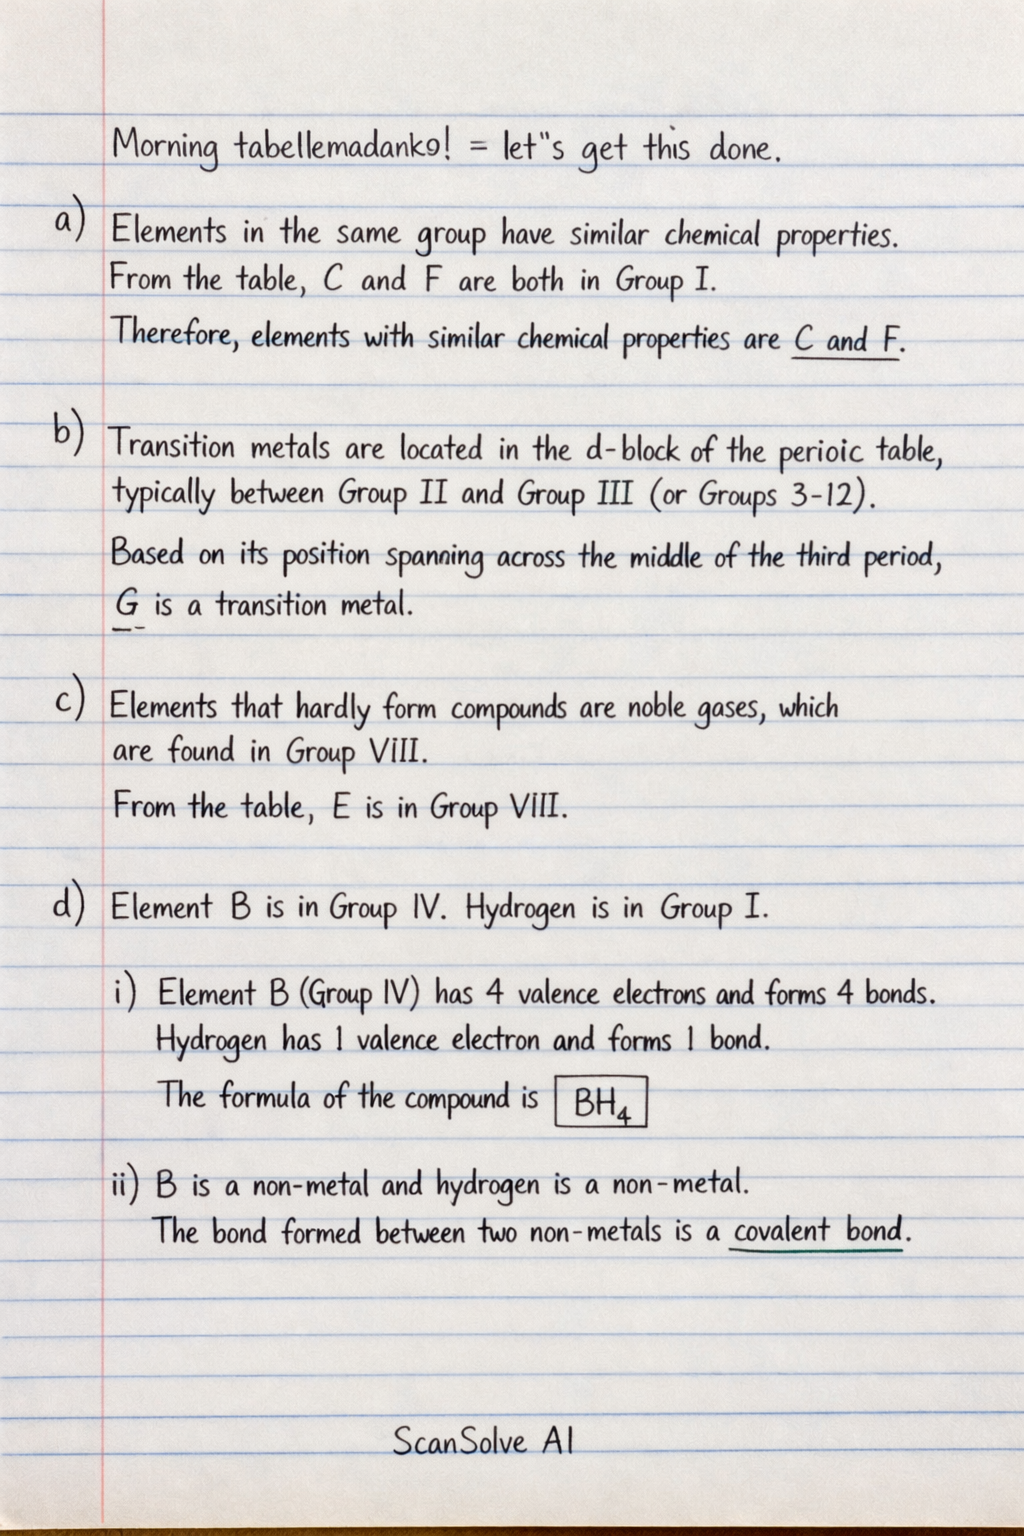 Morning tabellemadanko! = let"s get this done.
a) Elements in the same group have similar chemical properties.
From the table, C and F are both in Group I.
Therefore, elements with similar chemical properties are C and F.
b) Transition metals are located in the d-block of the perioic table,
typically between Group II and Group III (or Groups 3-12).
Based on its position spanning across the middle of the third period,
G is a transition metal.
c) Elements that hardly form compounds are noble gases, which
are found in Group VIII.
From the table, E is in Group VIII.
d) Element B is in Group IV. Hydrogen is in Group I.
i) Element B (Group IV) has 4 valence electrons and forms 4 bonds.
Hydrogen has 1 valence electron and forms 1 bond.
The formula of the compound is BH₄
ii) B is a non-metal and hydrogen is a non-metal.
The bond formed between two non-metals is a covalent bond.
ScanSolve AI